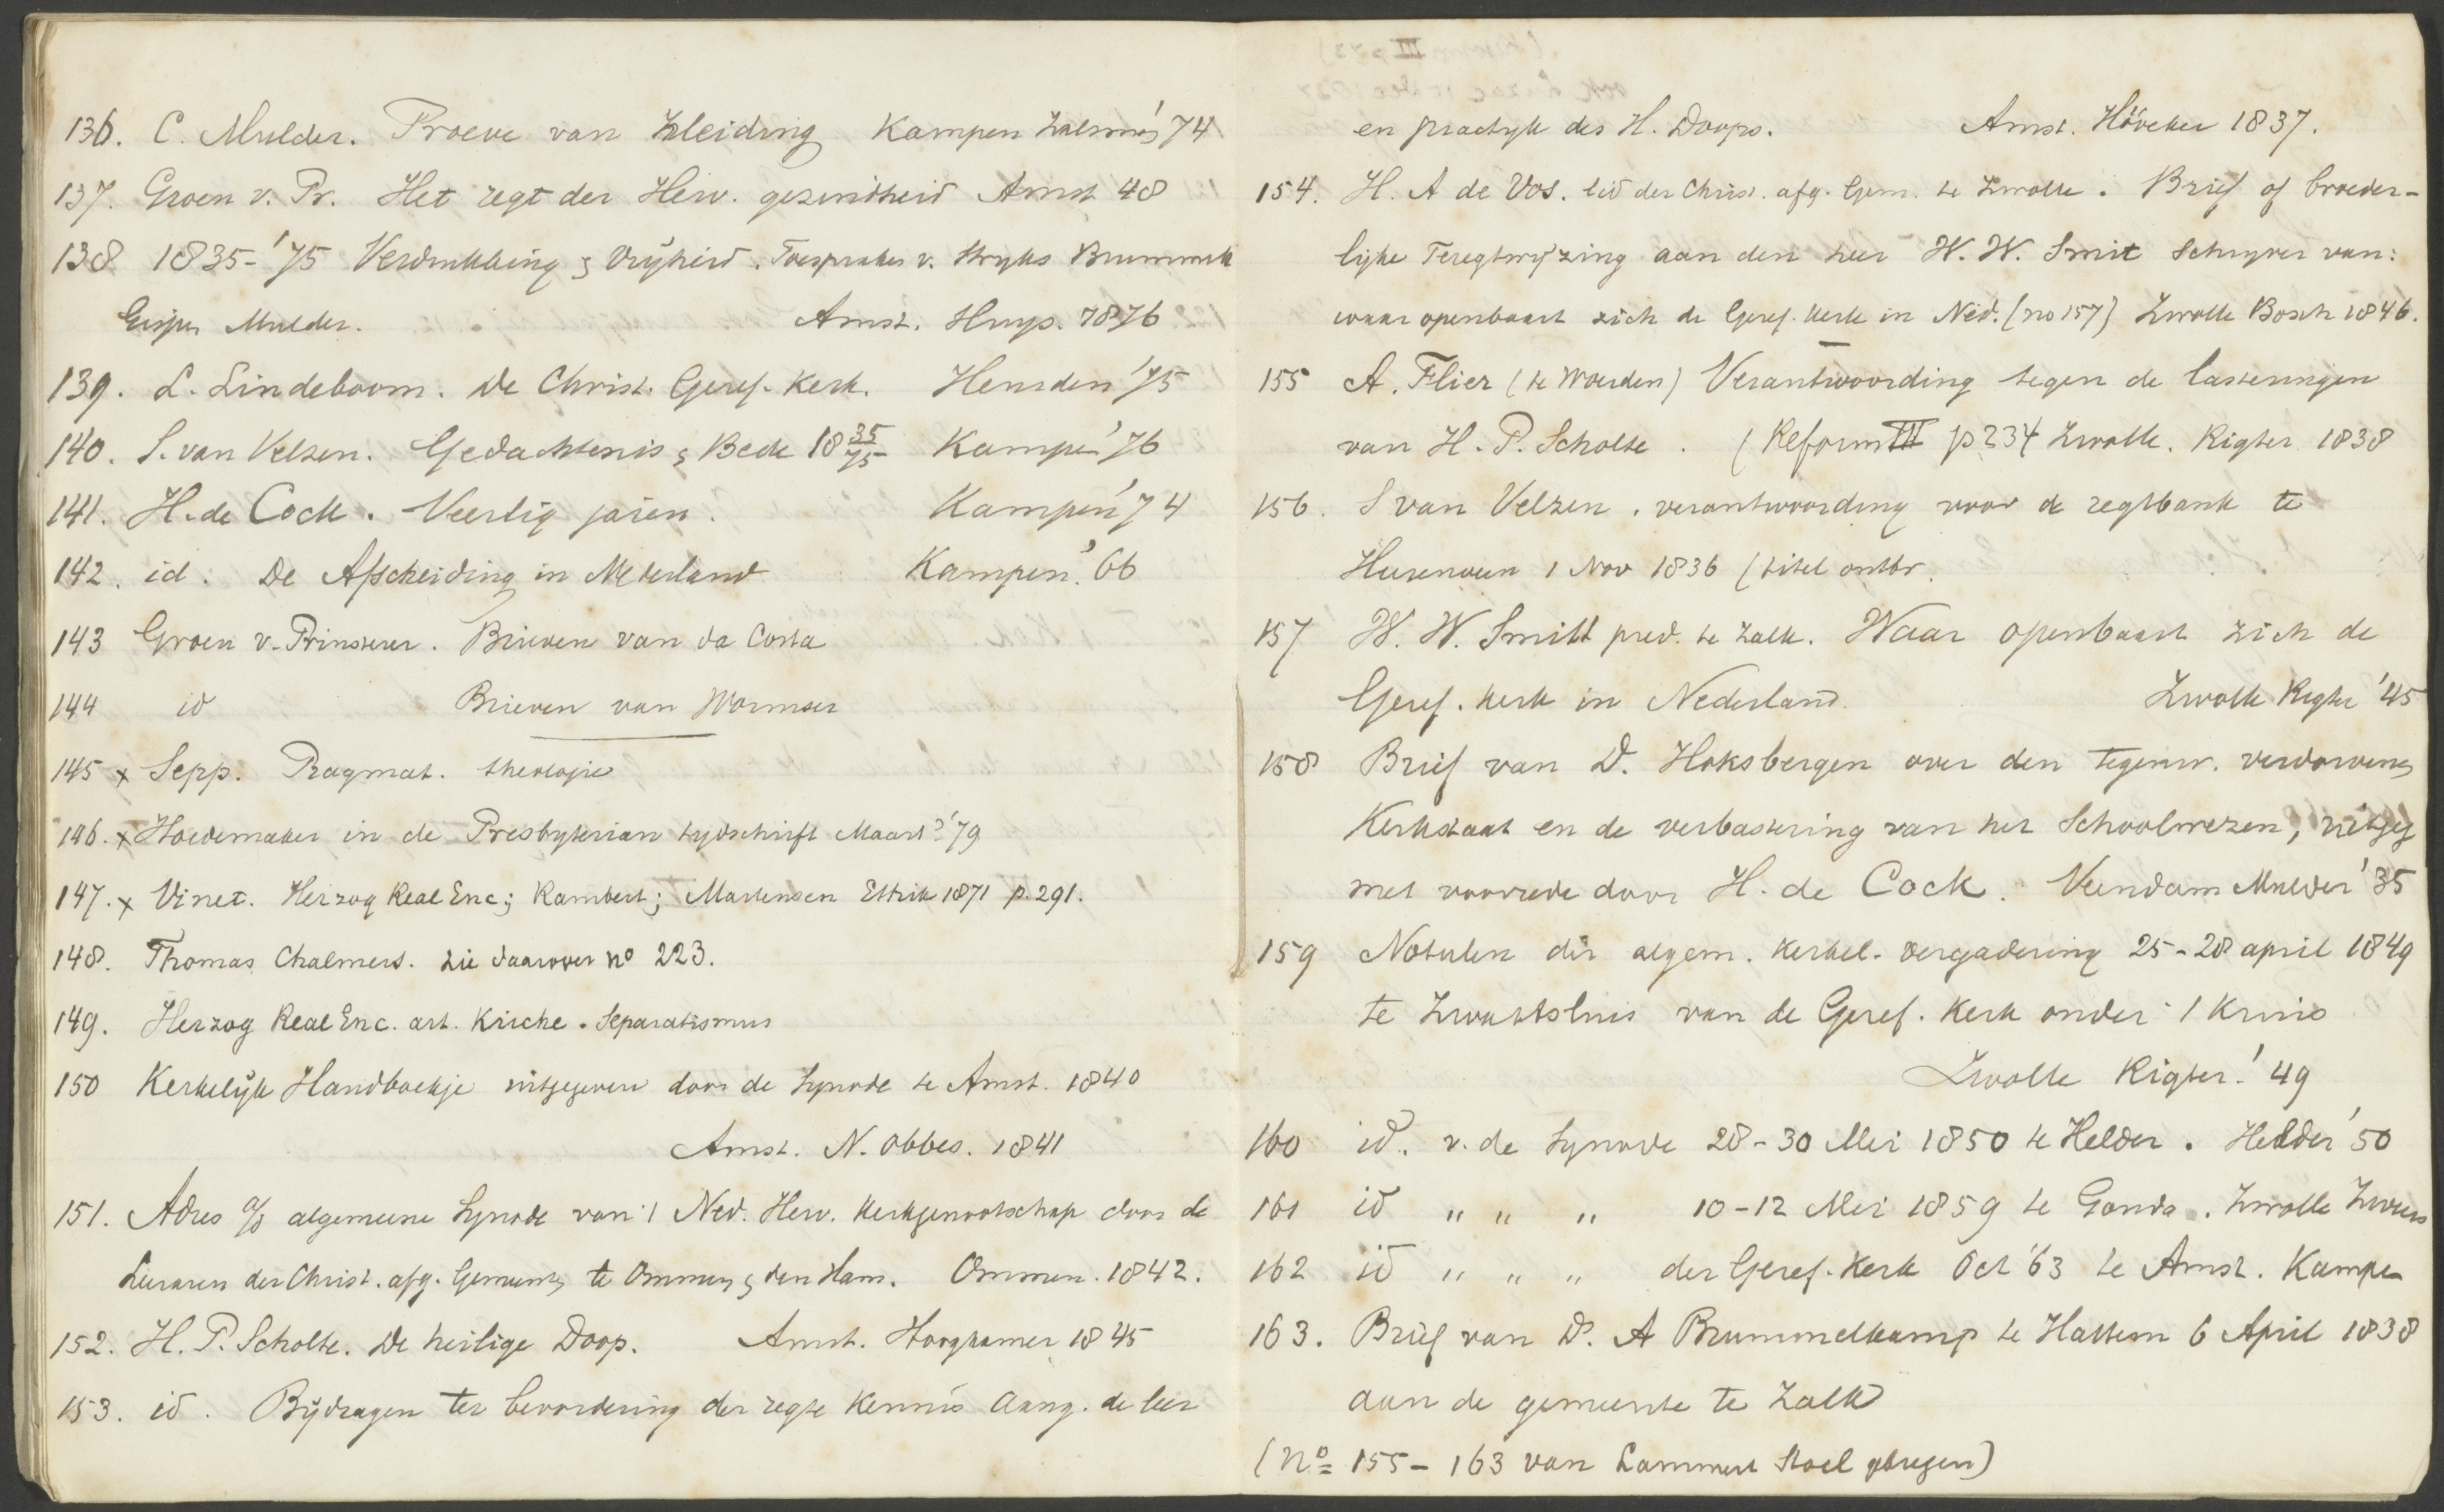 136. C. Mulder. Proeve van Kleiding Kampen Zalsman '74
137. Groen v. Pr. Het regt der Herv. gezindheid Amst 48
138 1835-'75 Verdrukking & Vrijheid. Toespraken v. Stryks Brummelk
Gispen Mulder. Amst. Huys. 1876
139. L. Lindeboom. De Christ. Geref. Kerk. Heusden '75
140. S. van Velzen. Gedachtenis & Bede 18 35/75 Kampen '76
141. H. de Cock. Veertig jaren. Kampen '74
142. id. De Afscheiding in Nederland Kampen '66
143 Groen v. Prinsterer. Brieven van da Costa
144 id Brieven van Wormser
145 x Sepp. Pragmat. theologie
146. x Hoedemaker in de Presbyterian tydschrift Maart? '79
147. x Vinet. Herzog Real Enc; Rambert; Martensen Ethik 1871 p. 291.
148. Thomas Chalmers. zie daarover no 223.
149. Herzog Real Enc. art. Kirche. Separatismus
150 Kerkelijk Handboekje uitgegeven door de Synode te Amst. 1840
Amst. N. Obbes. 1841
151. Adres a/d algemeene Synode van 't Ned. Herv. Kerkgenootschap door de
Leeraren der Christ. afg. Gemeenten te Ommen & den Ham. Ommen. 1842.
152. H. P. Scholte. De heilige Doop. Amst. Hoogkamer 1845
153. id. Bijdragen ter bevordering der regte Kennis aang. de leer
en practyk des H. Doops. Amst. Höveker 1837.
154. H. A de Vos. lid der Christ. afg. Gem. te Zwolle. Brief of broeder-
lijke Teregtwijzing aan den heer W. W. Smit Schryver van:
waar openbaart zich de Geref. Kerk in Ned. (no 157) Zwolle Bosch 1846.
155 A. Flier (te Woerden) Verantwoording tegen de lasteringen
van H. P. Scholte. (Reform III p 234 Zwolle. Rigter 1838
156. S van Velzen. verantwoording voor de regtbank te
Heerenveen 1 Nov 1836 (titel ontbr.
157 W. W. Smitt pred. te Zalk. Waar openbaart zich de
Geref. Kerk in Nederland. Zwolle Rigter '45
158 Brief van D. Hoksbergen over den tegenw. verdorvenen
Kerkstaat en de verbastering van het Schoolwezen, uitgeg
met voorrede door H. de Cock. Veendam Mulder '35
159 Notulen der algem. Kerkel. vergadering 25-28 april 1849
te Zwartsluis van de Geref. Kerk onder 't Kruis
Zwolle Rigter. '49
160 id. v. de Synode 28-30 Mei 1850 te Helder. Helder '50
161 id " " " 10-12 Mei 1859 te Gouda. Zwolle
162 id " " " der Geref. Kerk Oct '63 te Amst. Kampen
163. Brief van D. A Brummelkamp te Hattem 6 April 1838
aan de gemeente te Zalk
(No 155-163 van Lammert Stoel gekregen)